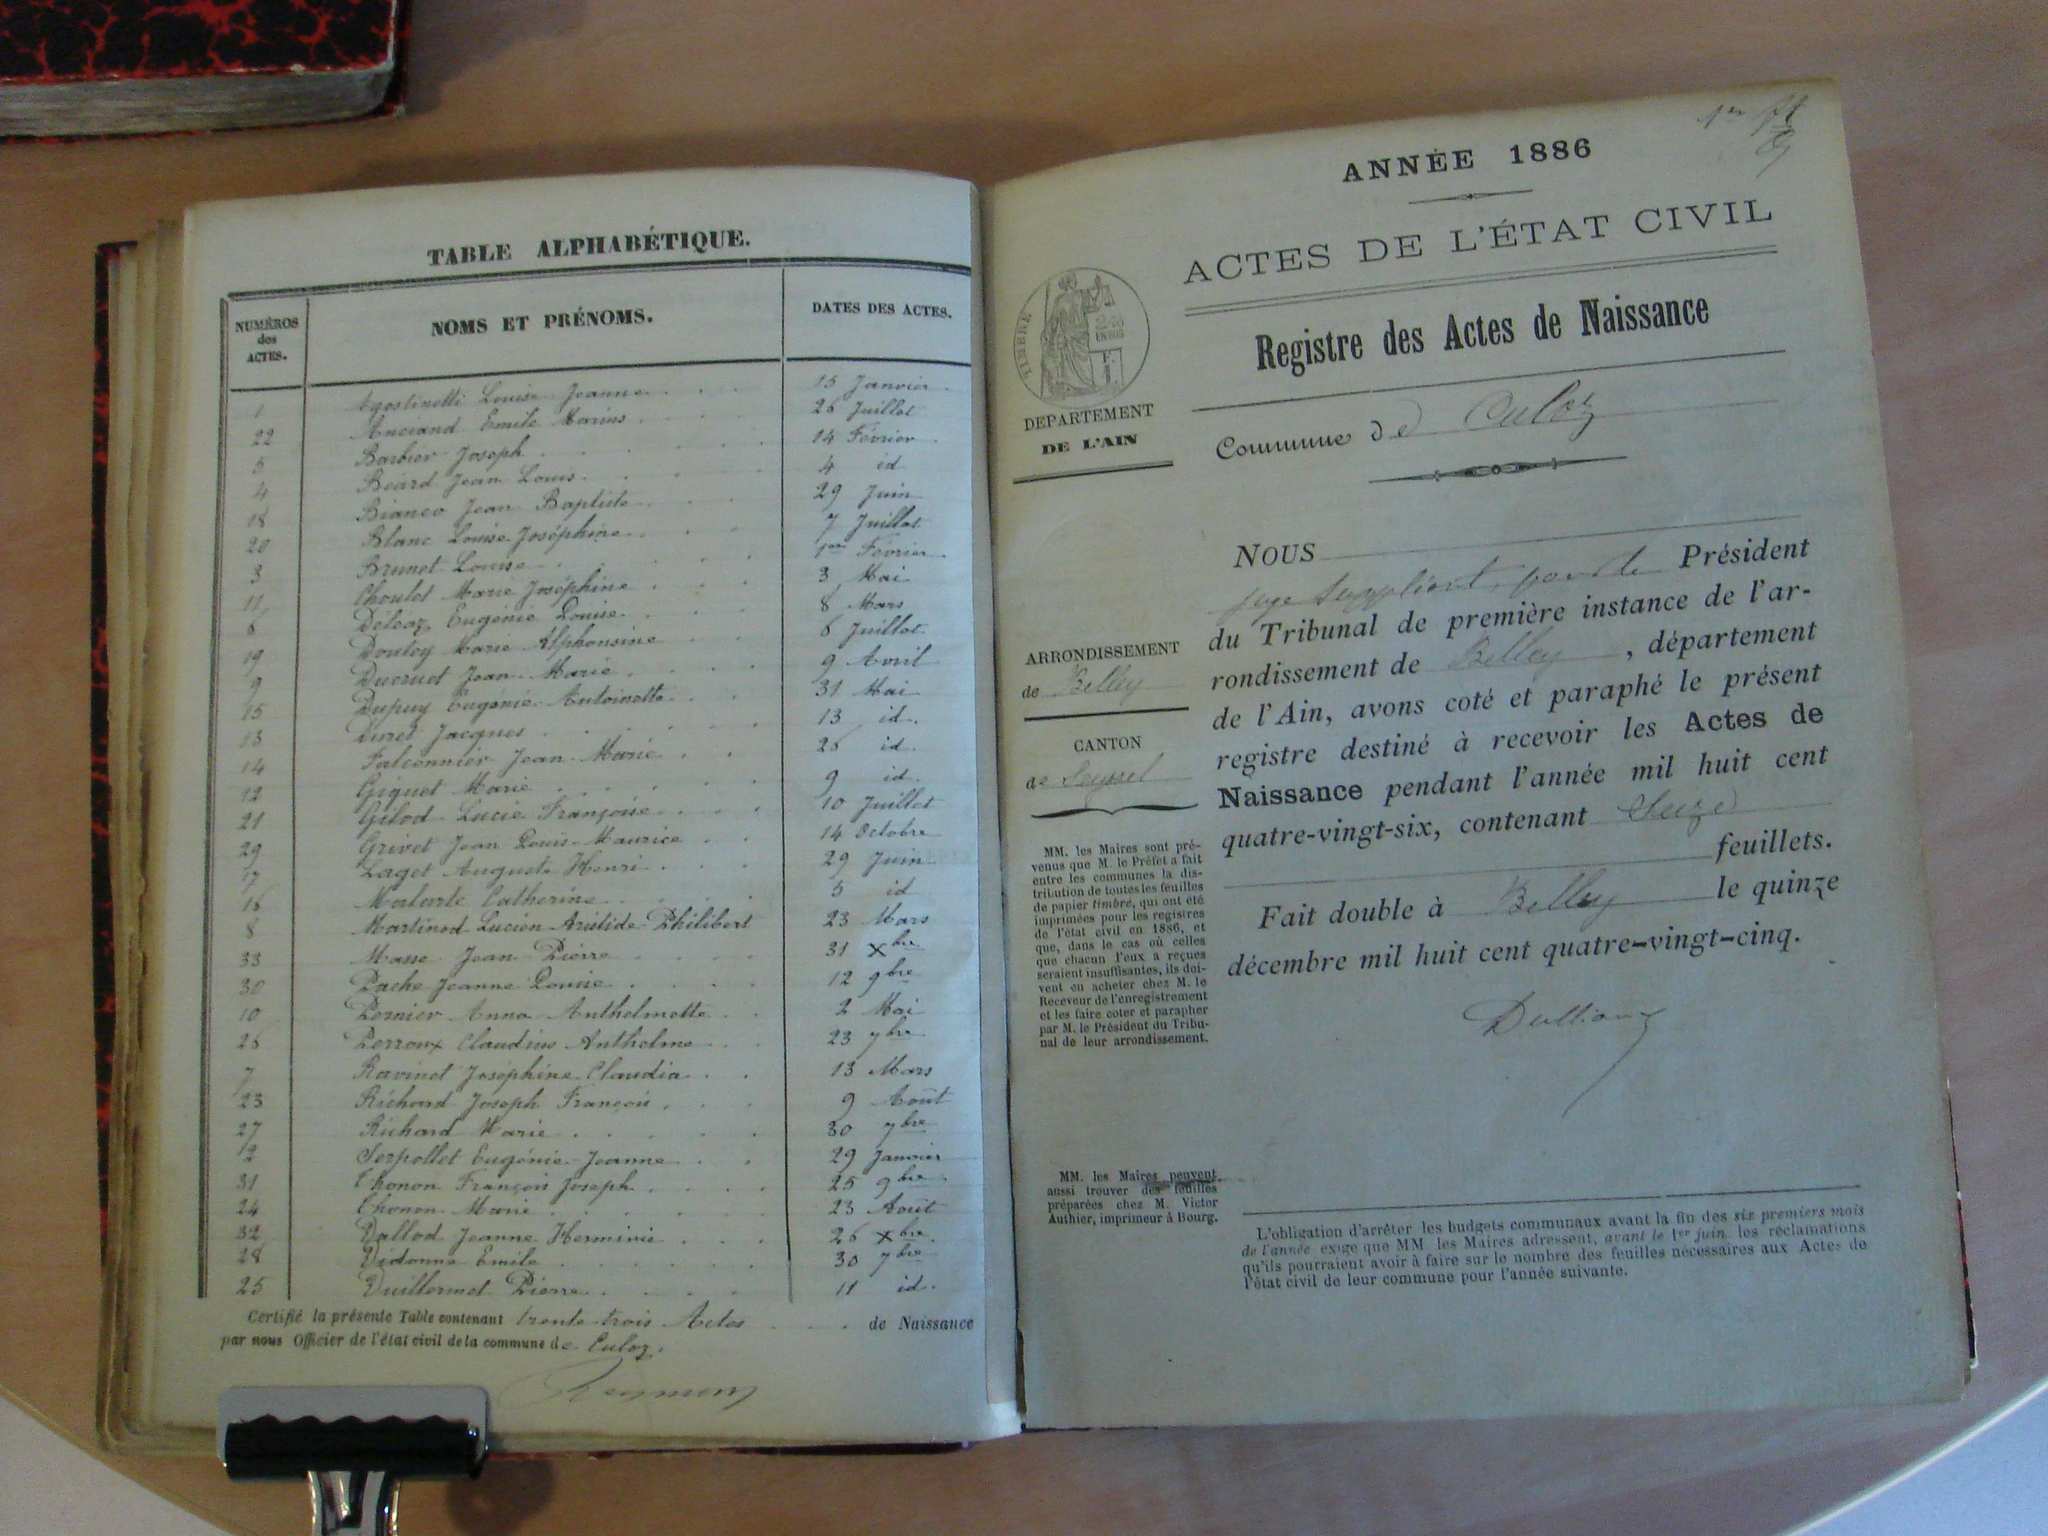 TABLE ALPHABÉTIQUE.
NUMÉROS des ACTES. NOMS ET PRÉNOMS. DATES DES ACTES.
1 Agostinetti Louise Jeanne 15 Janvier
22 Ancrand Emile Marius 26 Juillet
5 Barbier Joseph 14 Février
4 Béard Jean Louis 4 id
18 Bianco Jean Baptiste 29 Juin
20 Blanc Louise Joséphine 7 Juillet
3 Brunet Louise 1er Février
11 Choulet Marie Joséphine 3 Mai
6 Delcoz Eugénie Louise 8 Mars
19 Marie Alphonsine 6 Juillet
9 Ducruet Jean Marie 9 Avril
15 Dupuy Eugénie Antoinette 31 Mai
13 Duret Jacques 13 id.
14 Falconnier Jean Marie 26 id
12 Giquet Marie 9 id
21 Gilod Lucie Françoise 10 Juillet
29 Grivet Jean Louis Maurice 14 Octobre
17 Laget Auguste Henri 29 Juin
16 Catherine 5 id
8 Martinod Lucien Aristide Philibert 23 Mars
33 Masse Jean Pierre 31 Xbre
30 Pache Jeanne Louise 12 9bre
10 Pernier Anna Anthelmette 2 Mai
26 Perroux Claudius Anthelme 23 7bre
7 Ravinet Joséphine Claudia 13 Mars
23 Richard Joseph François 9 Août
27 Richard Marie 30 7bre
2 Serpollet Eugénie Jeanne 29 Janvier
31 Thonon François Joseph 25 9bre
24 Thonon Marie 23 Août
32 Vallod Jeanne Herminie 26 Xbre
28 Vidonne Emile 30 7bre
25 Vuillermet Pierre 11 id.
Certifié la présente Table contenant trente-trois Actes de Naissance
par nous Officier de l'état civil de la commune de Culoz.
1er
ANNÉE 1886
ACTES DE L'ÉTAT CIVIL
Registre des Actes de Naissance
Commune de Culoz
TIMBRE
DÉPARTEMENT
DE L'AIN
ARRONDISSEMENT
de Belley
CANTON
de Seyssel
MM. les Maires sont pré-
venus que M. le Préfet a fait
entre les communes la dis-
tribution de toutes les feuilles
de papier timbré, qui ont été
imprimées pour les registres
de l'état civil en 1886, et
que, dans le cas où celles
que chacun l'eux a reçues
seraient insuffisantes, ils doi-
vent en acheter chez M. le
Receveur de l'enregistrement
et les faire coter et parapher
par M. le Président du Tribu-
nal de leur arrondissement.
MM. les Maires peuvent
aussi trouver des feuilles
préparées chez M. Victor
Authier, imprimeur à Bourg.
NOUS
juge suppléant, pour le Président
du Tribunal de première instance de l'ar-
rondissement de Belley, département
de l'Ain, avons coté et paraphé le présent
registre destiné à recevoir les Actes de
Naissance pendant l'année mil huit cent
quatre-vingt-six, contenant Seize
feuillets.
Fait double à Belley le quinze
décembre mil huit cent quatre-vingt-cinq.
L'obligation d'arrêter les budgets communaux avant la fin des six premiers mois
de l'année exige que MM. les Maires adressent, avant le 1er juin, les réclamations
qu'ils pourraient avoir à faire sur le nombre des feuilles nécessaires aux Actes de
l'état civil de leur commune pour l'année suivante.